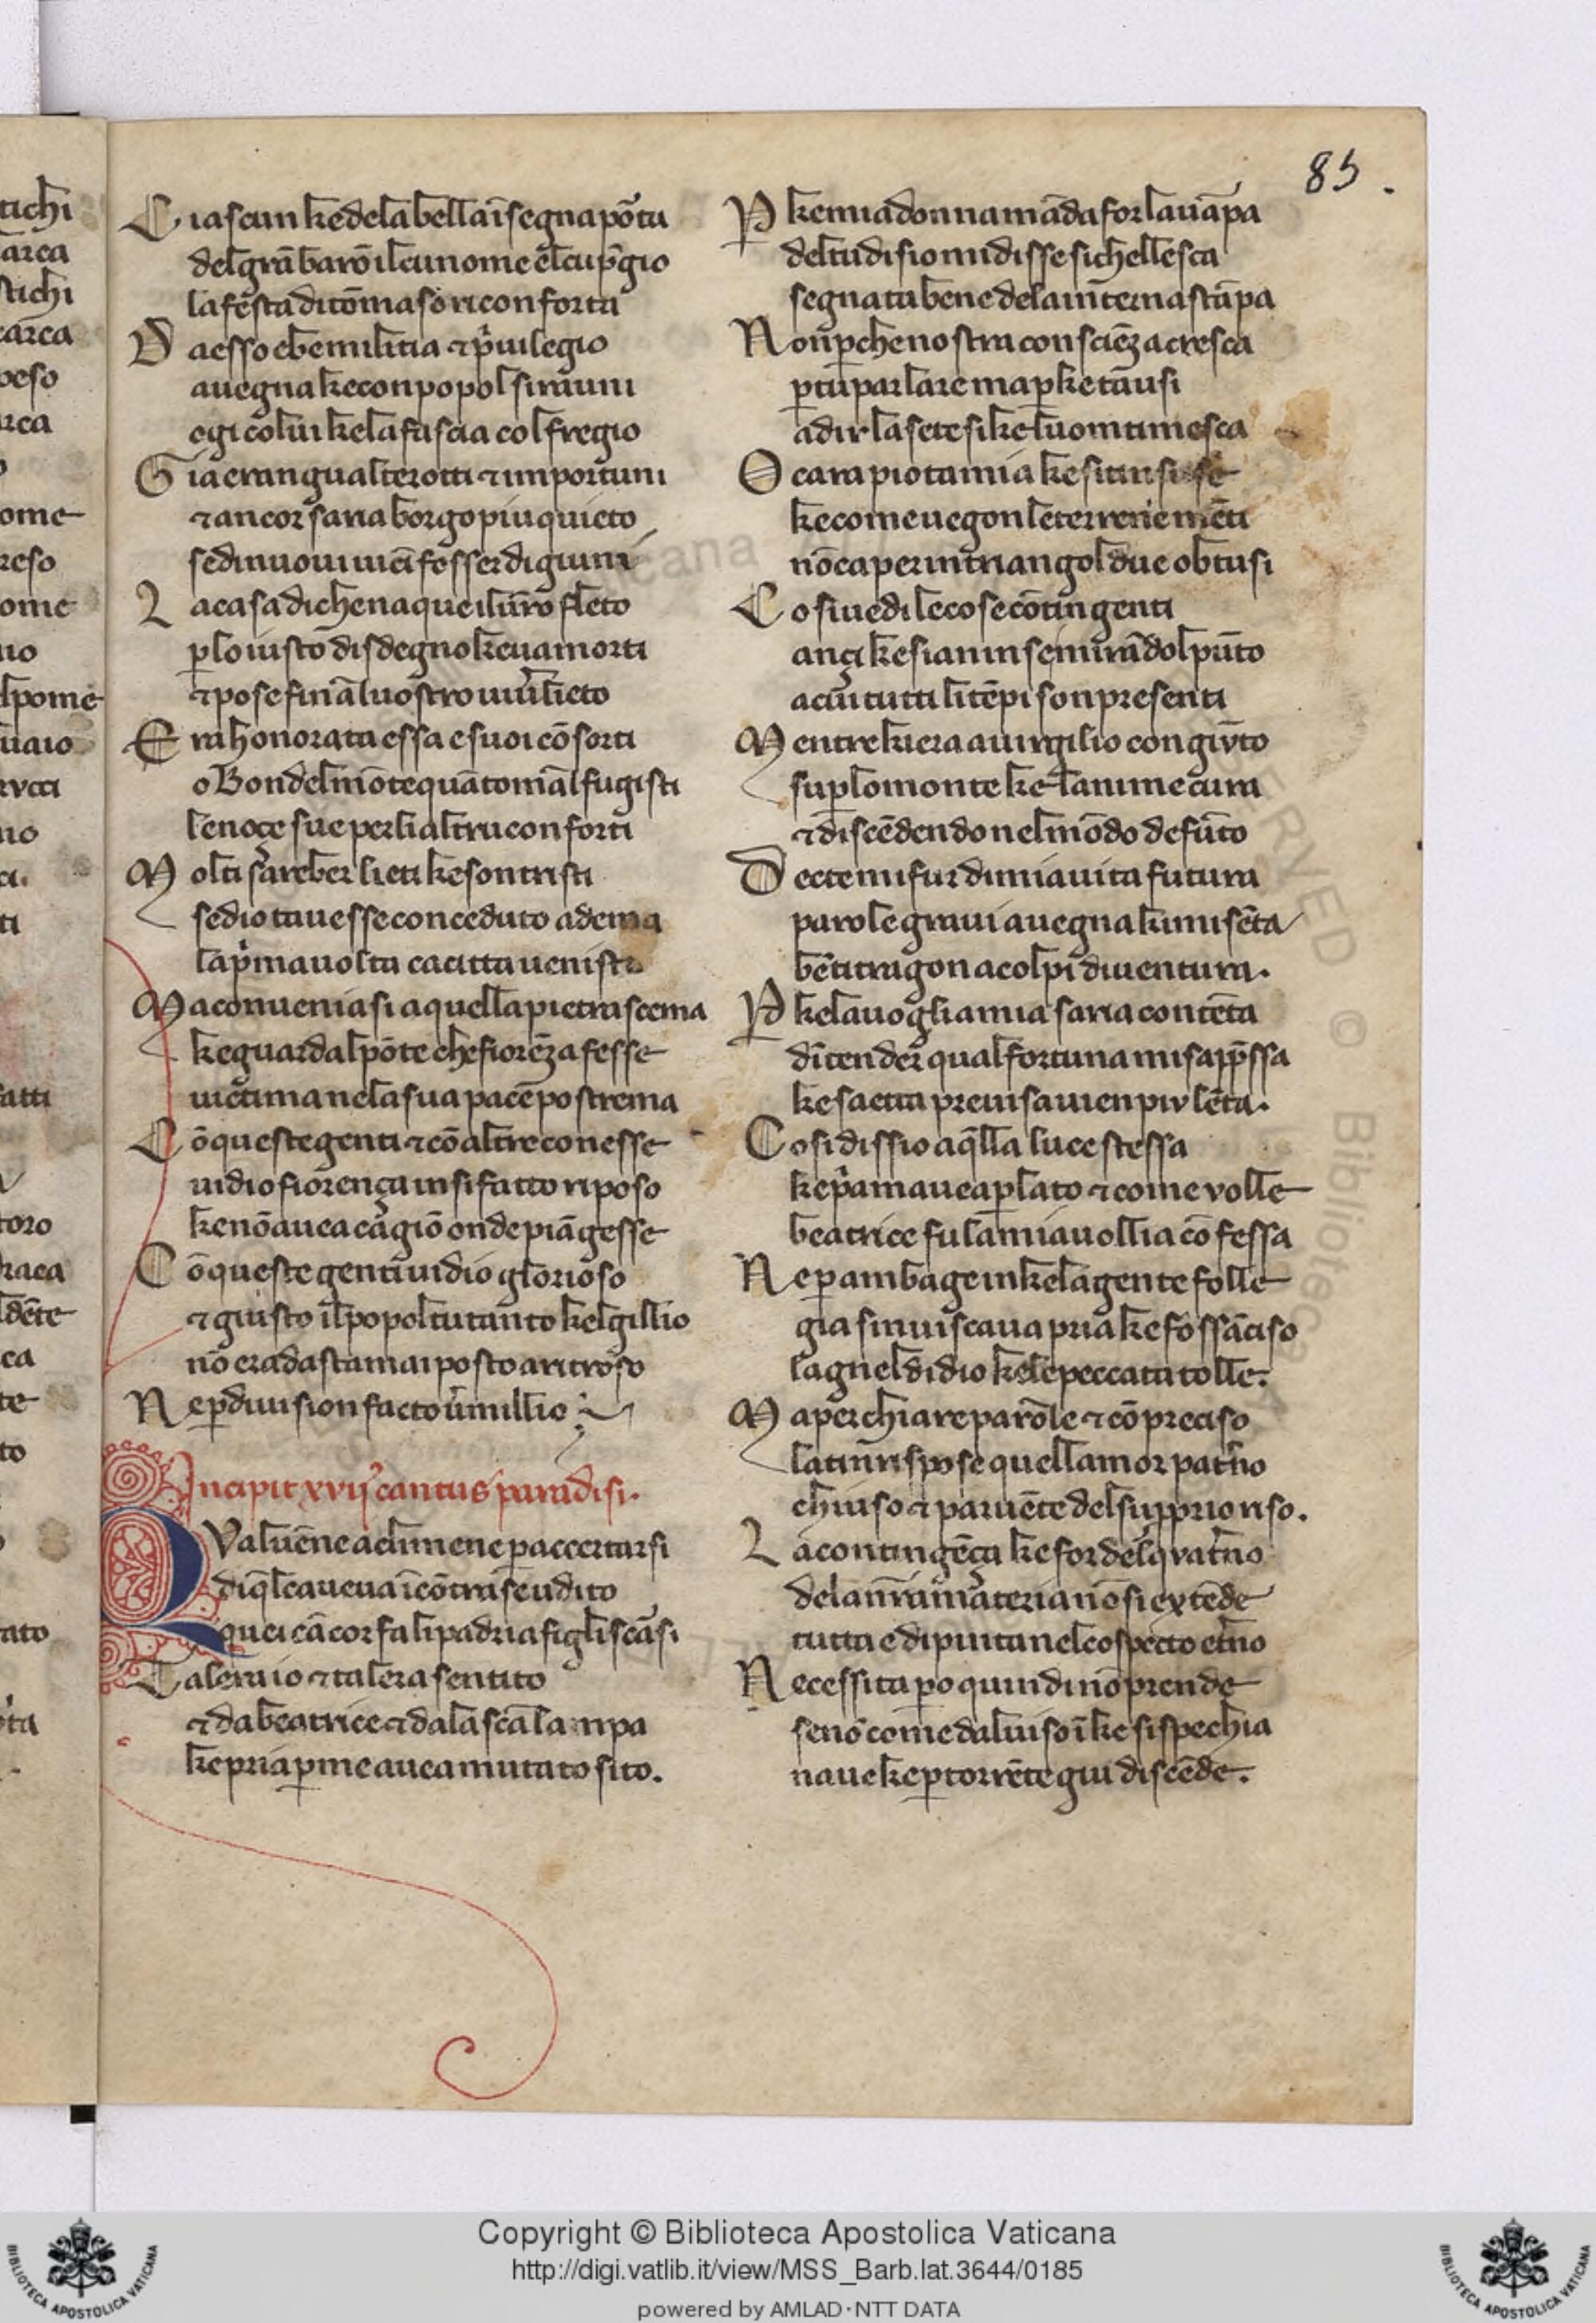 85.
Ciascun ke dela bella īsegna pōta
del grā barō il cui nome el cui pgio
la festa di tomaso riconforta
Da esso ebe militia ⁊ puilegio
auegna ke con popol si rauni
ogi colui ke la fascia col fregio
Gia eran gualterotti ⁊ importuni
⁊ ancor saria borgo piu quieto
se di nuoui uicī fosser digiuni
La casa di che naque il ūro fleto
p lo iusto disdegno ke ua morti
⁊ pose fin al uostro uiuer lieto
Era honorata essa e suoi cōsorti
o Bondelmōte quāto mal fugisti
le noçe sue per li altrui conforti
Molti sareber lieti ke son tristi
se dio tauesse conceduto ad ema
la pma uolta ca citta uenisti
Ma conueniasi a quella pietra scema
ke guarda l pōte che fiorēza fesse
uictima nela sua pace postrema
Cō queste genti ⁊ cō altre con esse
uidio fiorença in si fatto riposo
ke nō auea cagiō onde piāgesse
Cō queste genti uidio glorioso
⁊ giusto il popol tu tanto kel gillio
nō era dasta mai posto a ritroso
Ne p diuision facto ūmillio
Incipit xvij cantus paradisi.
Qual uēne a climene p accertarsi
di ql caueua īcōtra se udito
quei cācor fa li padri a figli scāsi
Tal era io ⁊ tal era sentito
⁊ da beatrice ⁊ dala scā lampa
ke pria p me auea mutato sito.
P ke mia donna māda for la uāpa
del tu disio mi disse si chellesca
segnata bene dela interna stāpa
Non p che nostra consciēza cresca
p tu parlare ma p ke tausi
a dir la sete si ke luom ti mesca
O cara piota mia ke si tinsuse
ke come uegon le terrene mēti
nō caper in triangol due obtusi
Cosi uedi le cose cōtingenti
anci ke sian in se mirādol pūto
a cui tutti li tēpi son presenti
Mentre kiera a uirgilio congivto
su p lo monte ke lanime cura
⁊ discēdendo nel mōdo defūto
Decte mi fur di mia uita futura
parole graui auegna kimi sēta
bē titragono a colpi di uentura.
P ke la uoglia mia saria contēta
dintender qual fortuna mi sappssa
ke saetta preuisa uien piv lēta.
Cosi dissio a qlla luce stessa
ke pama uea plato ⁊ come volle
beatrice fu la mia uollia cōfessa
Ne p ambage in ke la gente folle
gia sinuiscaua pria ke fossāciso
lagnel di dio ke le peccata tolle.
Ma per chiare parole ⁊ cō preciso
latin rispose quellamor patno
chiuso ⁊ paruēte del su pprio riso.
La contingēça ke for del qvatno
dela ūra materia nō si extēde
tutta e dipinta nel cospecto etno
Necessita po quindi nō prende
se nō come dal uiso ī ke si spechia
naue ke p torrēte giu discēde.
Copyright © Biblioteca Apostolica Vaticana
http://digi.vatlib.it/view/MSS_Barb.lat.3644/0185
powered by AMLAD·NTT DATA